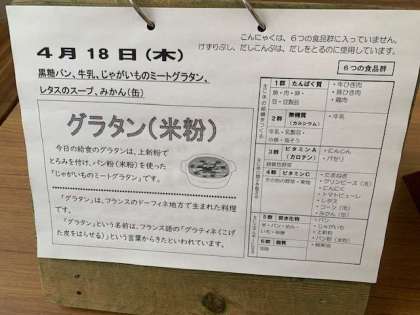 こんにゃくは、6つの食品群に入っていません。
けずりぶし、だしこんぶは、だしをとるのに使用しています。
4月18日(木)
黒糖パン、牛乳、じゃがいものミートグラタン、
レタスのスープ、みかん(缶)
グラタン(米粉)
今日の給食のグラタンは、上新粉で
とろみを付け、パン粉(米粉)を使った
「じゃがいものミートグラタン」です。
「グラタン」は、フランスのドーフィネ地方で生まれた料理
です。
「グラタン」という名前は、フランス語の「グラティネ(こげ
た皮をはらせる)」という言葉からきたといわれています。
6つの食品群
1群 たんぱく質
魚・肉・卵・
豆・豆製品
・牛ひき肉
・豚ひき肉
・鶏肉
2群 無機質
(カルシウム)
牛乳・乳製品・
小魚・海そう
・牛乳
3群 ビタミンA
(カロテン)
緑黄色野菜
・にんじん
・パセリ
4群 ビタミンC
その他の野菜・果物
・たまねぎ
・グリンピース(缶)
・にんにく
・トマトピューレ
・レタス
・コーン(缶)
・みかん(缶)
5群 炭水化物
米・パン・めん・
いも・砂糖
・パン
・じゃがいも
・上新粉
・パン粉(米粉)
6群 脂質